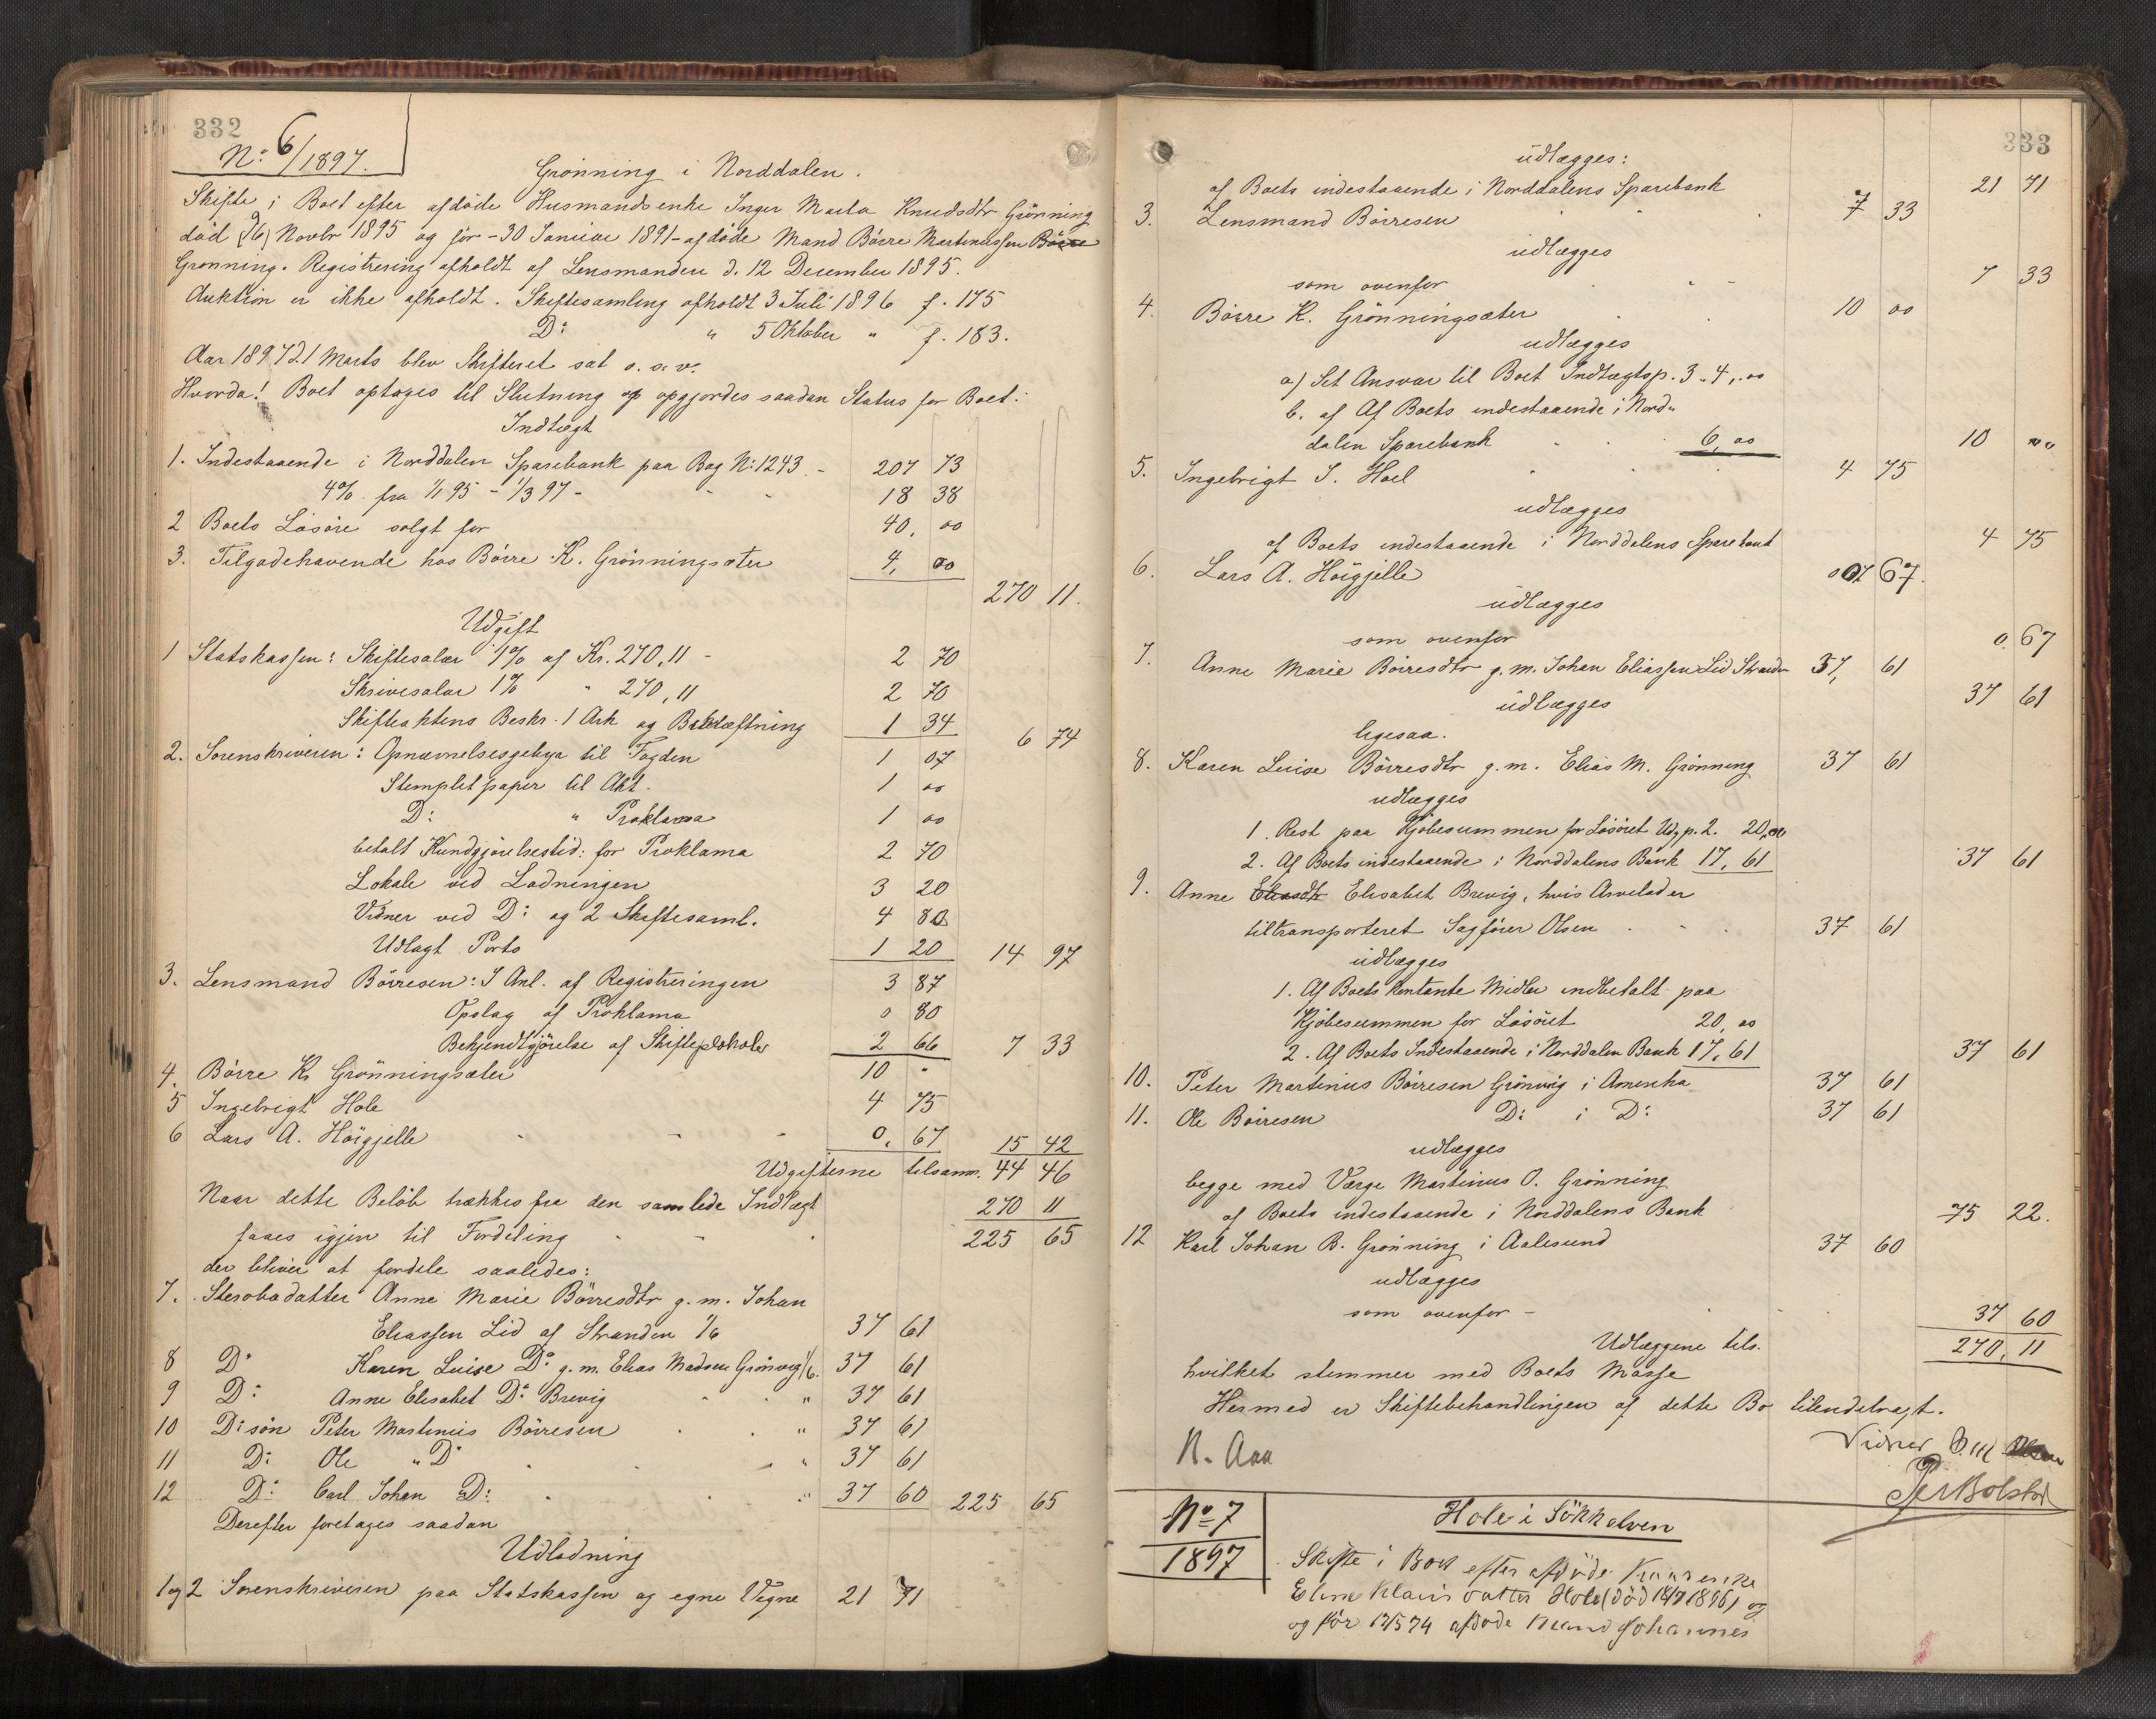 332
No: 6/1897.
Grønning i Norddalen.
Skifte i Boet efter afdøde Husmandsenke Inger Marta Knudsdtr Grønning
død Novbr 1895 og før - 30 Januar 1891 - afdøde Mand Børre Martinussen
Grønning. Registrering afholdt af Lensmanden d. 12 December 1895.
Auktion er ikke afholdt. Skiftesamling afholdt 3 Juli 1896 f. 175
D: " 5 Oktober " f. 183.
Aar 1897 d. 1 Marts blev Skifteret sat o. s. v.
Hvorda! Boet optages til Slutning og opgjordes saadan Status for Boet:
Indtægt
1. Indestaaende i Norddalen Sparebank paa Bog N: 1243 - 207 73
4% fra 1/1 95 - 1/3 97 - 18 38
2 Boets Løsøre solgt for 40, 00
3. Tilgodehavende hos Børre K. Grønningsæter 4, 00
270 11.
Udgift
1 Statskassen: Skiftesalær 1% af Kr. 270,11 - 2 70
Skrivesalær 1% " 270,11 2 70
Skifteaktens Beskr. 1 Ark og Bekræftning 1 34 6 74
2. Sorenskriveren: Opnævnelsesgebyr til Fogden 1 07
Stemplet papir til Akt. 1 00
D: " Proklama 1 00
betalt Kundgjørelsestid: for Proklama 2 70
Lokale ved Lodningen 3 20
Vidner ved D: og 2 Skiftesaml. 4 80
Udlagt Porto 1 20 14 97
3. Lensmand Børresen: I Anl. af Registreringen 3 87
Opslag af Proklama 0 80
Bekjendtgjørelse af 2 66 7 33
4. Børre K. Grønningsæter 10 -
5 Ingebrigt Hole 4 75
6 Lars A. Høigjelle 0, 67 15 42
Udgifterne tilsamm. 44 46
Naar dette Beløb trækkes fra den samlede Indtægt 270 11
faaes igjen til Fordeling 225 65
der bliver at fordele saaledes:
7. Sterobodatter Anne Marie Børresdtr g. m. Johan
Eliassen Lid af Stranden 1/6 37 61
8 D: Karen Luise D: g. m. Elias Madsen Grønning 1/6. 37 61
9 D: Anne Elisabet D: Brevig " 37 61
10 D: søn Peter Martinius Børresen " 37 61
11 D: Ole " D: " 37 61
12 D: Carl Johan D: " 37 60 225 65
Derefter foretages saadan
Udlodning
1 og 2 Sorenskriveren paa Statskassen og egne Vegne 21 71
333
udlægges:
af Boets indestaaende i Norddalens Sparebank 21 71
3. Lensmand Børresen 7 33
udlægges
som ovenfor 7 33
4. Børre K. Grønningsæter 10 00
udlægges
a) Sit Ansvar til Boet Indtægtsp. 3 . 4,.00
b. af Af Boets indestaaende i Nord-
dalen Sparebank 6,00 10 00
5. Ingebrigt I. Hoel 4 75
udlægges
af Boets indestaaende i Norddalens Sparebank 4 75
6. Lars A. Høigjelle 67.
udlægges
som ovenfor 0. 67
7. Anne Marie Børresdtr g. m. Johan Eliassen Lid Stranden 37, 61
udlægges 37 61
ligesaa.
8. Karen Luise Børresdtr g. m. Elias M. Grønning 37 61
udlægges
1. Rest paa Kjøbesummen for Løsøret Udg. p. 2. 20,00
2. Af Boets indestaaende i Norddalens Bank 17,61 37 61
9. Anne Elisabet Brevig, hvis Arvelod er
tiltransporteret Sagfører Olsen 37 61
udlægges
1. Af Boets kontante Midler indbetalt paa
Kjøbesummen for Løsøret 20,00
2. Af Boets Indestaaende i Norddalen Bank 17,61 37 61
10. Peter Martinius Børresen Grønning i Amerika 37 61
11. Ole Børresen D: i D: 37 61
udlægges
begge med Værge Martinus O. Grønning
af Boets indestaaende i Norddalens Bank 75 22.
12 Karl Johan B. Grønning i Aalesund 37 60
udlægges
som ovenfor - 37 60
Udlæggene tils. 270,11
hvilket stemmer med Boets Masse
Hermed er Skiftebehandlingen af dette Bo tilendebragt.
N. Aaa
Vidner
Per Bolstad
No 7
1897
Hole i Søkkelven
Skifte i Boet efter afdøde
Datter Hole (død 18/7 1896) og
og før 12/5 74 afdøde Mand Johannes